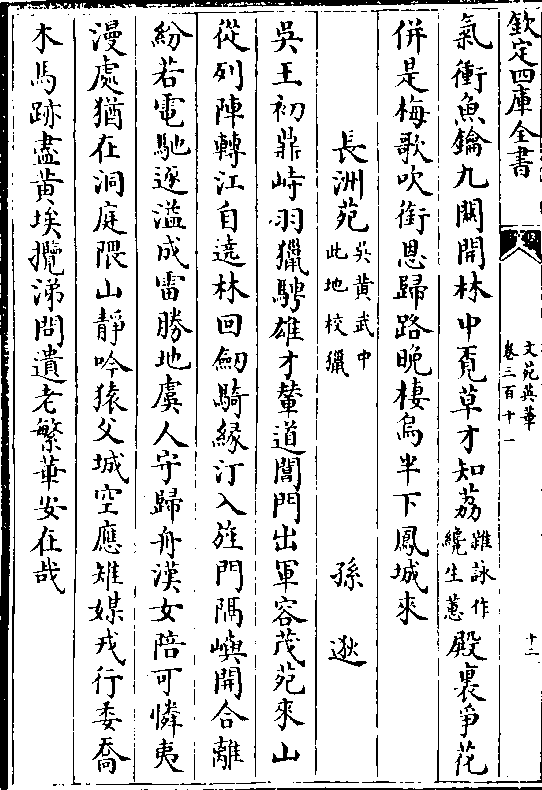 欽定四庫全書
文苑英華
卷三百十一
十二
氣衝魚鑰九關開林中覓草才知荔雜詠作纔生蕙殿裏爭花
併是梅歌吹銜恩歸路晚棲烏半下鳳城來
長洲苑吳黄武中此地校獵 孫逖
吳王初鼎峙羽獵騁雄才輦道閶門出軍容茂苑來山
從列陣轉江自遶林回劒騎緣汀入旌門隔嶼開合離
紛若電馳逐溢成雷勝地虞人守歸舟漢女陪可憐夷
漫處猶在洞庭隈山靜吟猿父城空應雉媒戎行委喬
木馬跡盡黄埃攬涕問遺老繁華安在哉